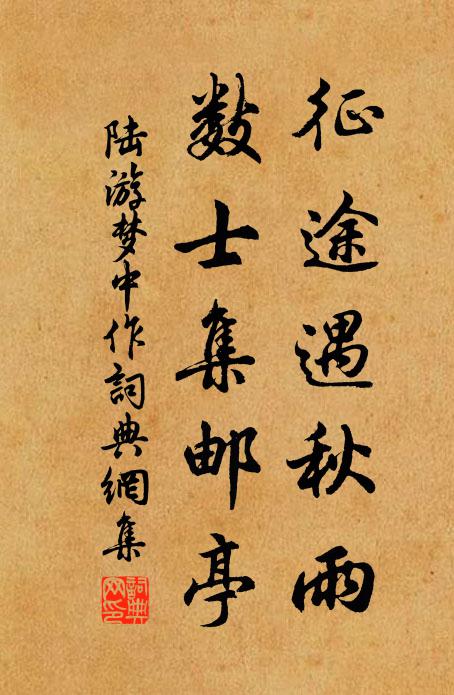 征途遇秋雨
数士集邮亭
陆游梦中作詞典網集
詞典网印